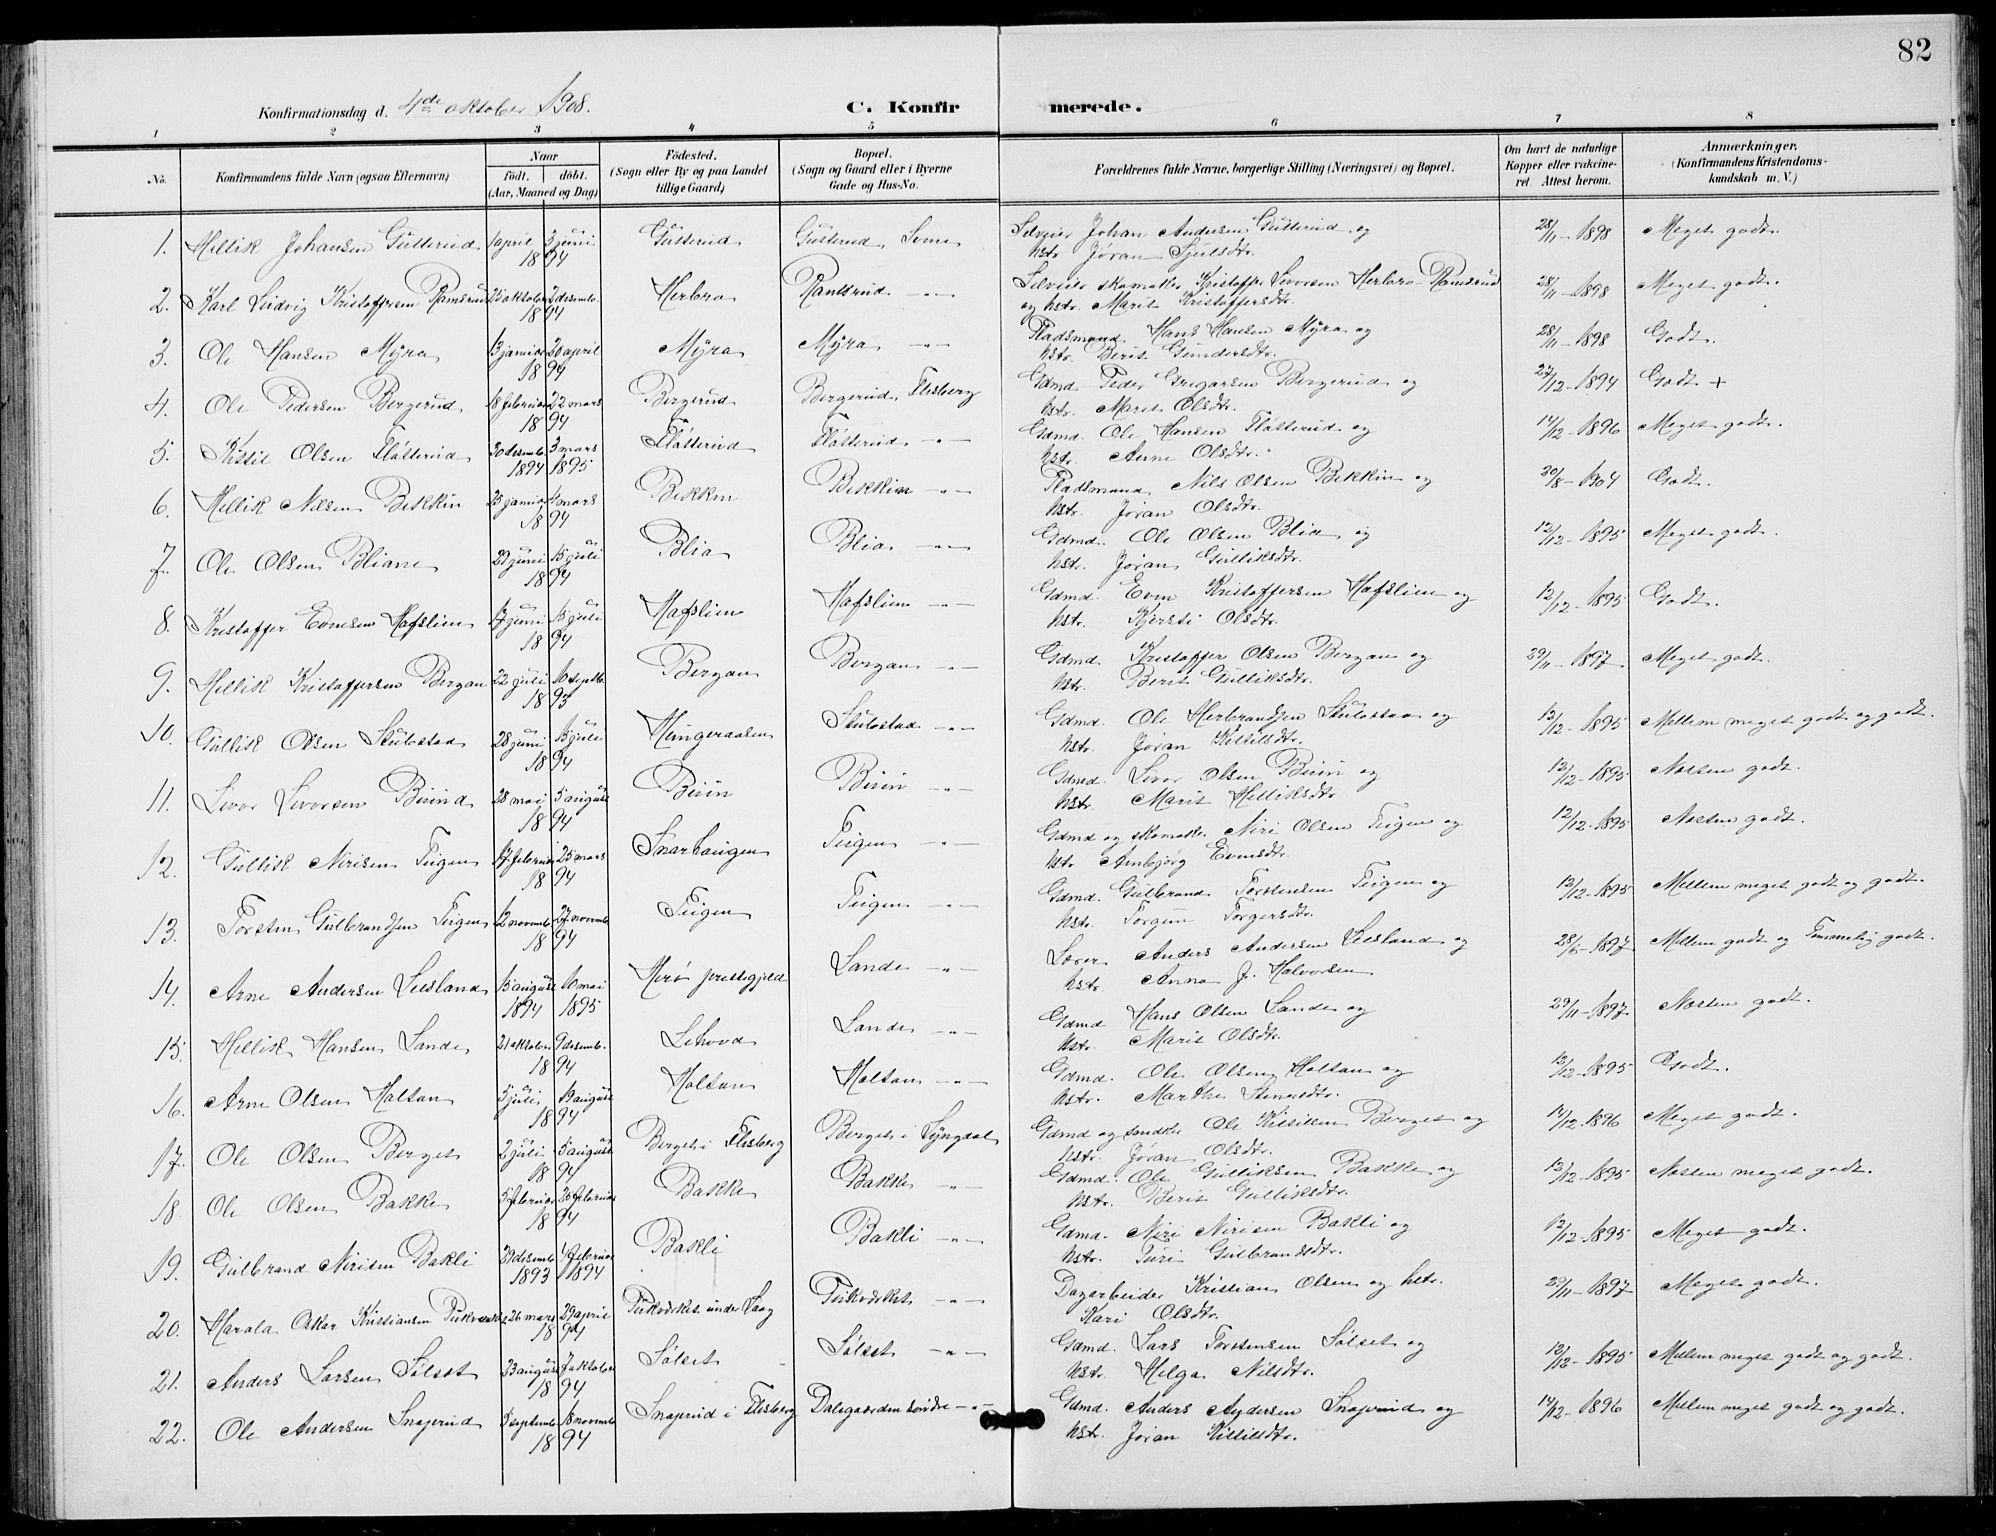 82
Konfirmationsdag d. 4de oktober 1908. C. Konfirmerede.
1 2 3 4 5 6 7 8
No. Konfirmandens fulde Navn (ogsaa Efternavn) Naar født. døbt. (Aar, Maaned og Dag) Fødested. (Sogn eller By og paa Landet tillige Gaard) Bopæl. (Sogn og Gaard eller i Byerne Gade og Hus-No. Forældrenes fulde Navne, borgerlige Stilling (Næringsvei) og Bopæl. Om havt de naturlige Kopper eller vakcineret. Attest herom. Anmærkninger. (Konfirmandens Kristendomskundskab m. V.)
1. Hellik Johansen Gütterud 1 april 3 juni 1894 Gütterud Gütterud, Svene Selveier Johan Andersen Gütterud og hstr. Jøran Sjulsdtr. 28/11-1898 Meget godt.
2. Karl Ludvig Kristoffersen Ramsrud 25 oktober 2 desemb. 1894 Herbro Ramsrud -"- Selveier skomaker Kristoffer Levorsen Herbro-Ramsrud og hstr. Marit Kristoffersdtr. 28/11-1898 Meget godt.
3. Ole Hansen Myra 13 januar 20 april 1894 Myra Myra -"- Pladsmand Hans Hansen Myra og hstr. Berit Gundersdtr. 28/11-1898 Godt.
4. Ole Pedersen Bergerud 18 februar 22 mars 1894 Bergerud Bergerud, Flesberg Gdmd. Peder Gregarsen Bergerud og hstr. Marit Olsdtr. 27/12-1894 Godt +
5. Kittil Olsen Fløtterud 30 desemb. 1894 3 mars 1895 Fløtterud Fløtterud -"- Gdmd. Ole Hansen Fløtterud og hstr. Anne Olsdtr. 14/12-1896 Meget godt.
6. Hellik Nilsen Bekkin 25 januar 4 mars 1894 Bekkin Bekkin -"- Pladsmand Nils Olsen Bekkin og hstr. Jøran Olsdtr. 30/8-1904 Godt.
7. Ole Olsen Bliane 29 juni 15 juli 1894 Blia Blia -"- Gdmd. Ole Olsen Blia og hstr. Jøran Gulliksdtr. 12/12-1895 Meget godt.
8. Kristoffer Evensen Hafslien 17 juni 15 juli 1894 Hafslien Hafslien -"- Gdmd. Even Kristoffersen Hafslien og hstr. Kjersti Olsdtr. 12/12-1895 Godt.
9. Hellik Kristoffersen Bergan 22 juli 10 septbr 1893 Bergan Bergan -"- Gdmd. Kristoffer Olsen Bergan og hstr. Berit Gulliksdtr. 29/11-1897 Meget godt.
10. Gullik Olsen Skulestad 28 juni 15 juli 1894 Hungeraasen Skulestad -"- Gdmd. Ole Herbrandsen Skulestad og hstr. Jøran Kittilsdtr. 12/12-1895 Mellem meget godt og godt.
11. Levor Levorsen Buind 28 mai 5 august 1894 Buin Buin -"- Gdmd. Levor Olsen Buin og hstr. Marit Helliksdtr. 12/12-1895 Næsten godt.
12. Gullik Nirisen Teigen 17 februar 25 mars 1894 Snarhaugen Teigen -"- Gdmd og skomaker Niri Olsen Teigen og hstr. Anbjørg Evensdtr. 12/12-1895 Næsten godt.
13. Torsten Gulbrandsen Teigen 12 novemb. 27 novemb. 1894 Teigen Teigen -"- Gdmd. Gulbrand Torstensen Teigen og hstr. Torgun Torgersdtr. 12/12-1895 Mellem meget godt og godt.
14. Arne Andersen Liesland 15 august 1894 10 mai 1895 Herø prestegjeld Lande -"- Lærer Anders Andersen Liesland og hstr. Anna J. Halvorsen 28/6-1897 Mellem godt og Temmelig godt.
15. Hellik Hansen Lande 21 oktober 9 desemb. 1894 Lehovd Lande -"- Gdmd Hans Olsen Lande og hstr. Marit Olsdtr. 29/11-1897 Næsten godt.
16. Arne Olsen Holtan 5 juli 19 august 1894 Holtan Holtan -"- Gdmd. Ole Olsen Holtan og hstr. Marthe Steensdtr. 12/12-1895 Godt.
17. Ole Olsen Berget 2 juli 5 august 1894 Berget i Flesberg Berget i Lyngdal Gdmd og smed Ole Kittilsen Berget og hstr. Jøran Olsdtr. 14/12-1896 Meget godt.
18 Ole Olsen Bakke 5 februar 25 februar 1894 Bakke Bakke -"- Gdmd. Ole Gulliksen Bakke og hstr. Berit Gulliksdtr. 12/12-1895 Næsten meget godt.
19. Gulbrand Nirisen Bakli 29 desemb. 1893 4 februar 1894 Bakli Bakli -"- Gdmd. Niri Nirisen Bakli og hstr. Turi Gulbrandsdtr. 12/12-1895 Meget godt.
20. Harald Oskar Kristiansen Pukverket 26 mars 29 april 1894 Pukverket under Saag Pukverket -"- Dagarbeider Kristian Olsen og hstr. Kari Olsdtr. 29/11-1897 Meget godt.
21. Anders Larsen Sølset 23 august 7 oktober 1894 Sølset Sølset -"- Gdmd. Lars Torstensen Sølset og hstr. Helga Nilsdtr. 12/12-1895 Mellem meget godt og godt.
22. Ole Andersen Snaprud 5 septemb. 18 novemb. 1894 Snaprud i Flesberg Dalsgaarden søndre -"- Gdmd. Anders Andersen Snaprud og hstr. Jøran Kittilsdtr. 14/12-1896 Mellem meget godt og godt.